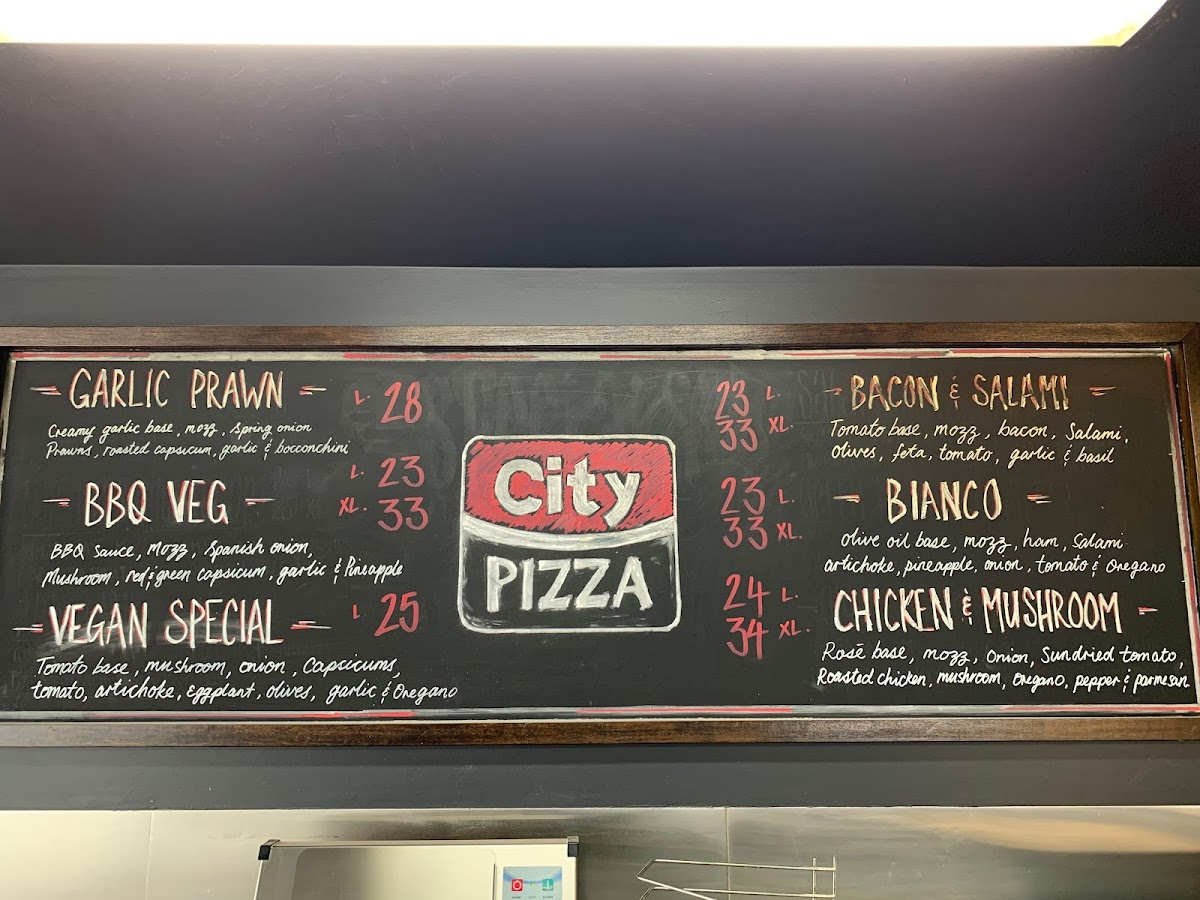 GARLIC PRAWN
L. 28
Creamy garlic base, mozz, Spring onion
Prawns, roasted capsicum, garlic & bocconchini
BBQ VEG
L. 23
XL. 33
BBQ Sauce, Mozz, Spanish onion,
Mushroom, red & green capsicum, garlic & Pineapple
VEGAN SPECIAL
L 25
Tomato base, mushroom, onion, Capsicums,
tomato, artichoke, Eggplant, olives, garlic & Oregano
City
PIZZA
BACON & SALAMI
23 L.
33 XL.
Tomato base, mozz, bacon, Salami,
Olives, feta, tomato, garlic & basil
BIANCO
23 L.
33 XL.
Olive oil base, mozz, ham, Salami
artichoke, pineapple, onion, tomato & Oregano
CHICKEN & MUSHROOM
24 L.
34 XL.
Rosē base, mozz, Onion, Sundried tomato,
Roasted chicken, mushroom, Oregano, pepper & parmesan